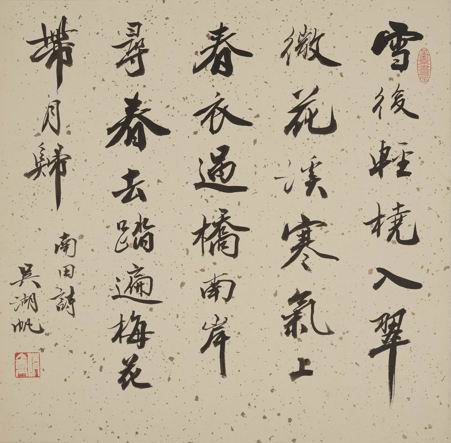 雪後輕橈入翠
微花溪寒氣上
春衣過橋南岸
尋春去踏遍梅花
帶月歸
南田詩
吳湖帆